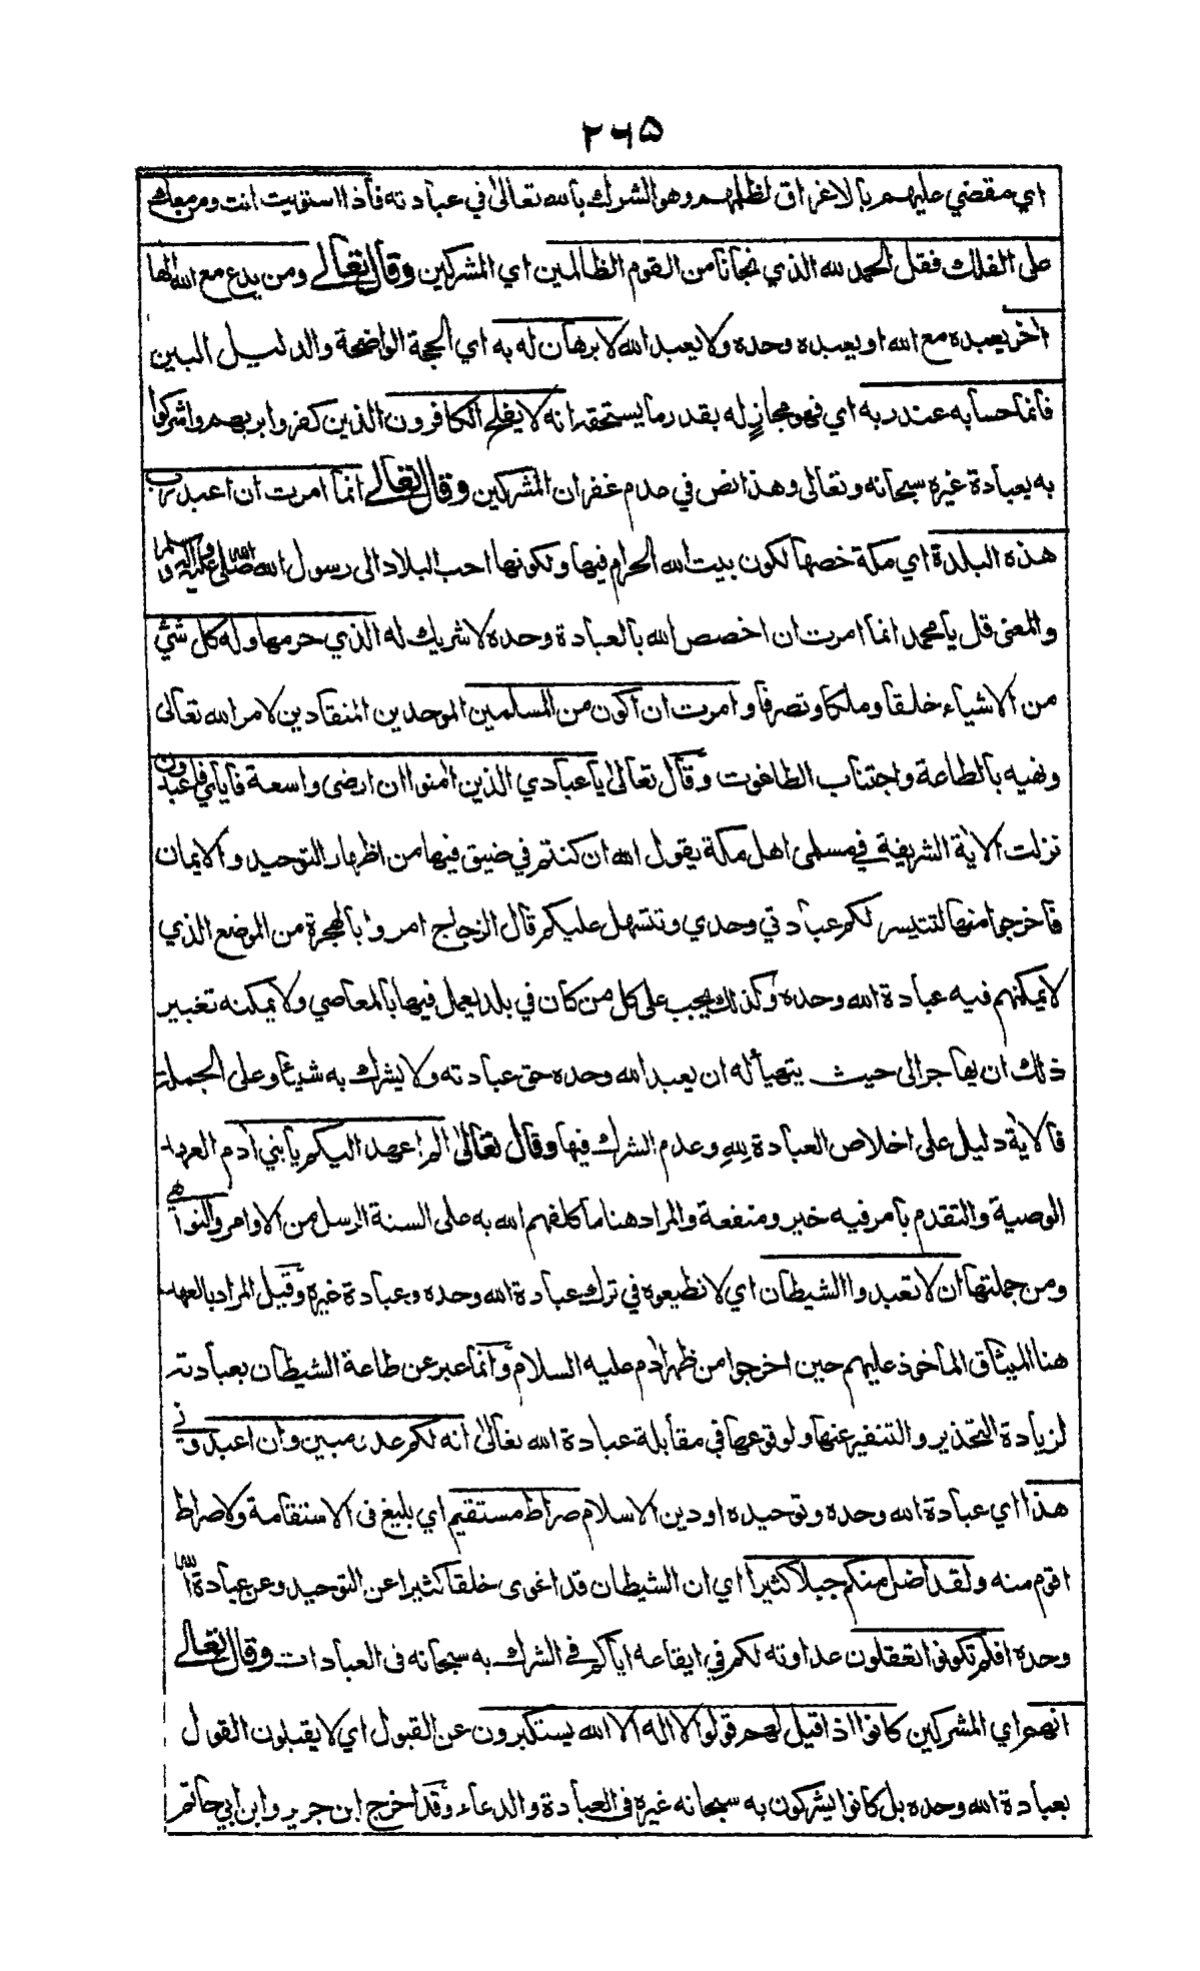 ٢٦٥
اي مقضي عليهم بالاغراق لظلمهم وهو الشرك بالله تعالى في عبادته فاذا استويت انت ومن معك
على الفلك فقل الحمد لله الذي نجانا من القوم الظالمين اي المشركين وقال تعالى ومن يدع مع الله الها
اخر يعبده مع الله او يعبده وحده ولا يعبد الله لا برهان له به اي الحجة الواضحة والدليل المبين
فانما حسابه عند ربه اي فهو مجازٍ له بقدر ما يستحقه انه لا يفلح الكافرون الذين كفروا بربهم واشركوا
به بعبادة غيره سبحانه وتعالى وهذا نص في عدم غفران المشركين وقال تعالى انما امرت ان اعبد رب
هذه البلدة اي مكة خصها لكون بيت الله الحرام فيها ولكونها احب البلاد الى رسول الله صلى الله عليه واله وسلم
والمعنى قل يا محمد انما امرت ان اخصص الله بالعبادة وحده لا شريك له الذي حرمها وله كل شيْ
من الاشياء خلقا وملكا وتصرفا وامرت ان اكون من المسلمين الموحدين المنقادين لامر الله تعالى
ونهيه بالطاعة واجتناب الطاغوت وقال تعالى يا عبادي الذين امنوا ان ارضى واسعة فاياي فاعبدون
نزلت الاية الشريفة في مسلمى اهل مكة يقول الله ان كنتم في ضيق فيها من اظهار التوحيد والايمان
فاخرجوا منها لتتيسر لكم عبادتي وحدي وتتسهل عليكم قال الزجاج امروا بالهجرة من الموضع الذي
لا يمكنهم فيه عبادة الله وحده وكذلك يجب على كل من كان في بلد يعمل فيها بالمعاصي ولا يمكنه تغيير
ذلك ان يهاجر الى حيث يتهيأ له ان يعبد الله وحده حق عبادته ولا يشرك به شيئا وعلى الجملة
فالاية دليل على اخلاص العبادة لِلهِ وعدم الشرك فيها وقال تعالى الم اعهد اليكم يا بني ادم العهد
الوصية والتقدم بامر فيه خير ومنفعة والمراد هنا ما كلفهم الله به على السنة الرسل من الاوامر والنواهي
ومن جملتها ان لا تعبدوا الشيطان اي لا تطيعوه في ترك عبادة الله وحده وعبادة غيره وقيل المراد بالعهد
هنا الميثاق الماخوذ عليهم حين اخرجوا من ظهر ادم عليه السلام وانما عبر عن طاعة الشيطان بعبادته
لزيادة التحذير والتنفير عنها ولوقوعها في مقابلة عبادة الله تعالى انه لكم عدو مبين وان اعبدوني
هذا اي عبادة الله وحده وتوحيده او دين الاسلام صراط مستقيم اي بليغ فى الاستقامة ولا صراط
اقوم منه ولقد اضل منكم جبلا كثيرا اي ان الشيطان قد اغوى خلقا كثيرا عن التوحيد وعن عبادة الله
وحده افلم تكونوا تعقلون عداوته لكم في ايقاعه اياكم في الشرك به سبحانه فى العبادات وقال تعالى
انهم اي المشركين كانوا اذا قيل لهم قولوا لا اله الا الله يستكبرون عن القبول اي لا يقبلون القول
بعبادة الله وحده بل كانوا يشركون به سبحانه غيره فى العبادة والدعاء وقد اخرج ابن جرير وابن ابي حاتم